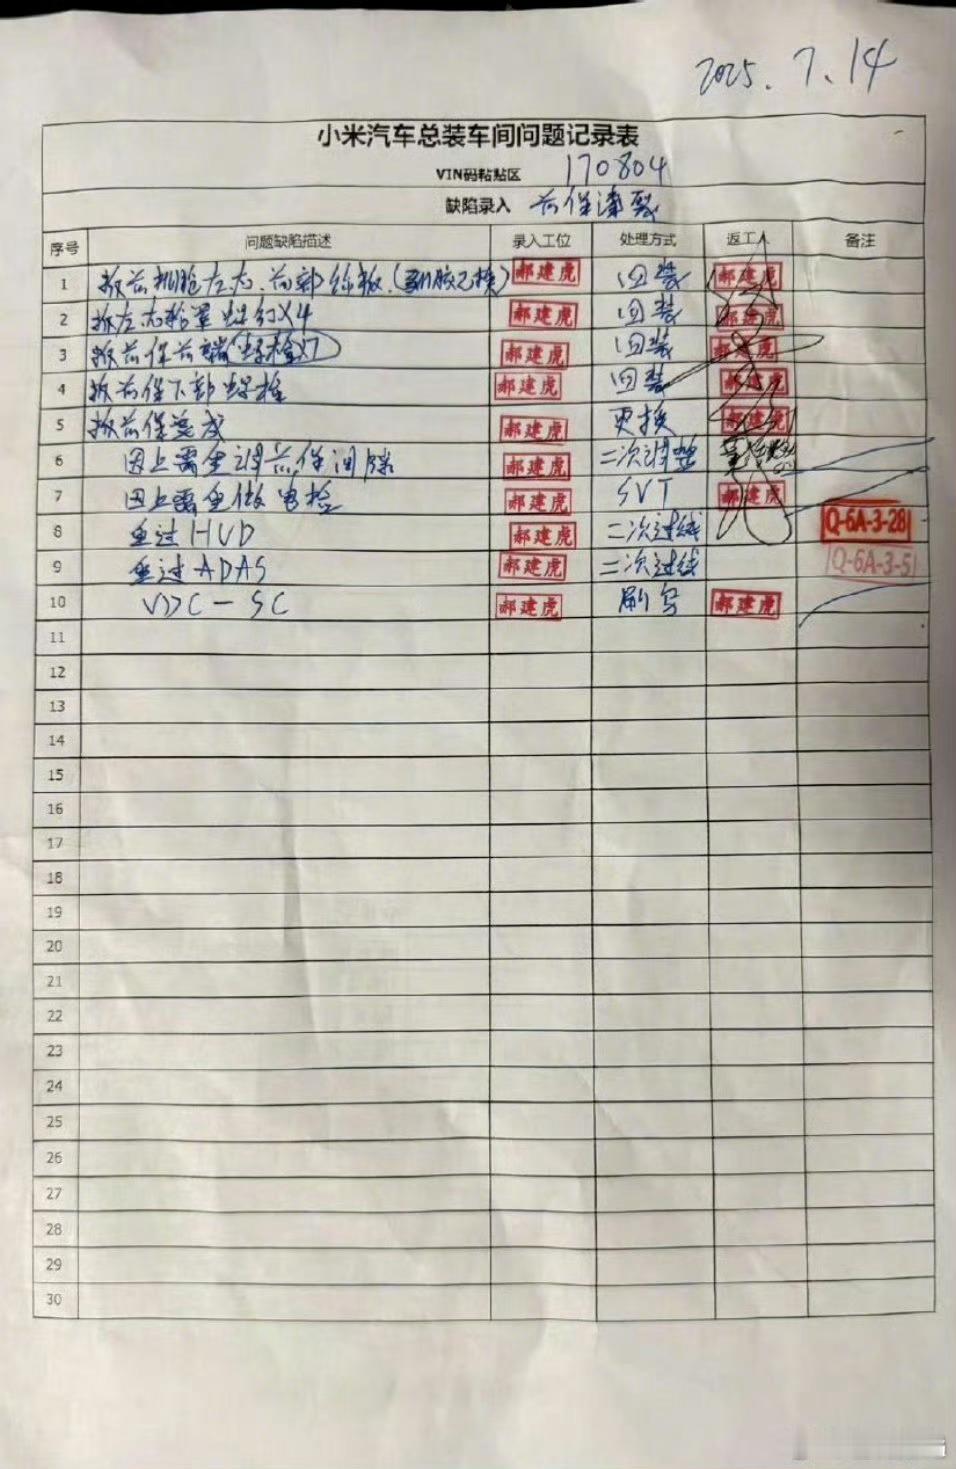 2025.7.14
小米汽车总装车间问题记录表
VIN码粘贴区 170804
缺陷录入 前保漆裂
序号 问题缺陷描述 录入工位 处理方式 返工人 备注
1 拆前机舱左右、前部饰板 郝建虎 回装 郝建虎
2 拆左右轮罩螺钉X4 郝建虎 回装 郝建虎
3 拆前保前端螺栓X7 郝建虎 回装 郝建虎
4 拆前保下部螺栓 郝建虎 回装 郝建虎
5 拆前保总成 郝建虎 更换 郝建虎
6 因上需重调前保间隙 郝建虎 二次调整
7 因上需重做电检 郝建虎 SVT 郝建虎
8 重过HUD 郝建虎 二次过线 Q-6A-3-28
9 重过ADAS 郝建虎 二次过线 Q-6A-3-5
10 VDC-SC 郝建虎 刷写 郝建虎
11
12
13
14
15
16
17
18
19
20
21
22
23
24
25
26
27
28
29
30